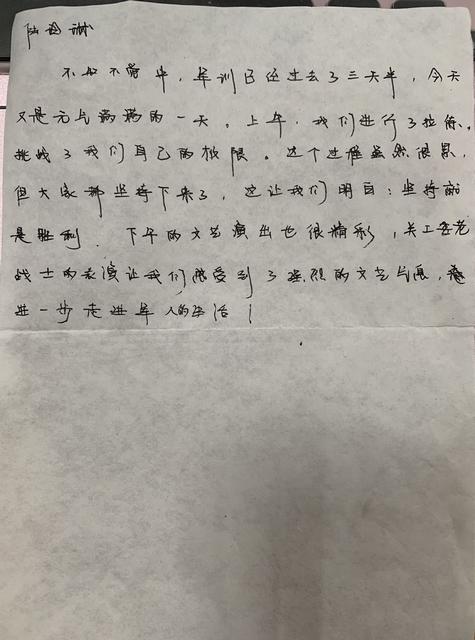 不知不觉中，军训已经过去了三天半，今天
又是元气满满的一天。上午，我们进行了拉练，
挑战了我们自己的极限。这个过程虽然很累，
但大家都坚持下来了，这让我们明白：坚持就
是胜利。下午的文艺演出也很精彩，关工委老
战士的表演让我们感受到了强烈的文艺气息，
进一步走进军人的生活！